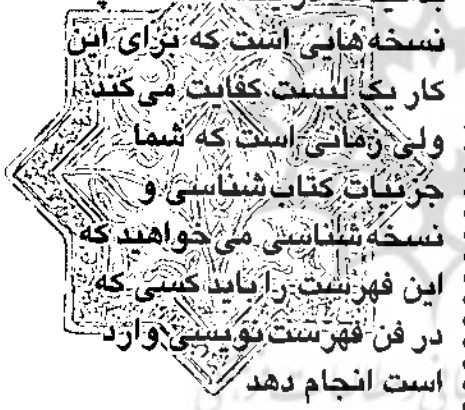 نسخه‌هایی است که برای این
کار یک لیست کفایت می‌کند
ولی زمانی است که شما
جزئیات کتاب‌شناسی و
نسخه‌شناسی می‌خواهید که
این فهرست را باید کسی که
در فن فهرست‌نویسی وارد
است انجام دهد